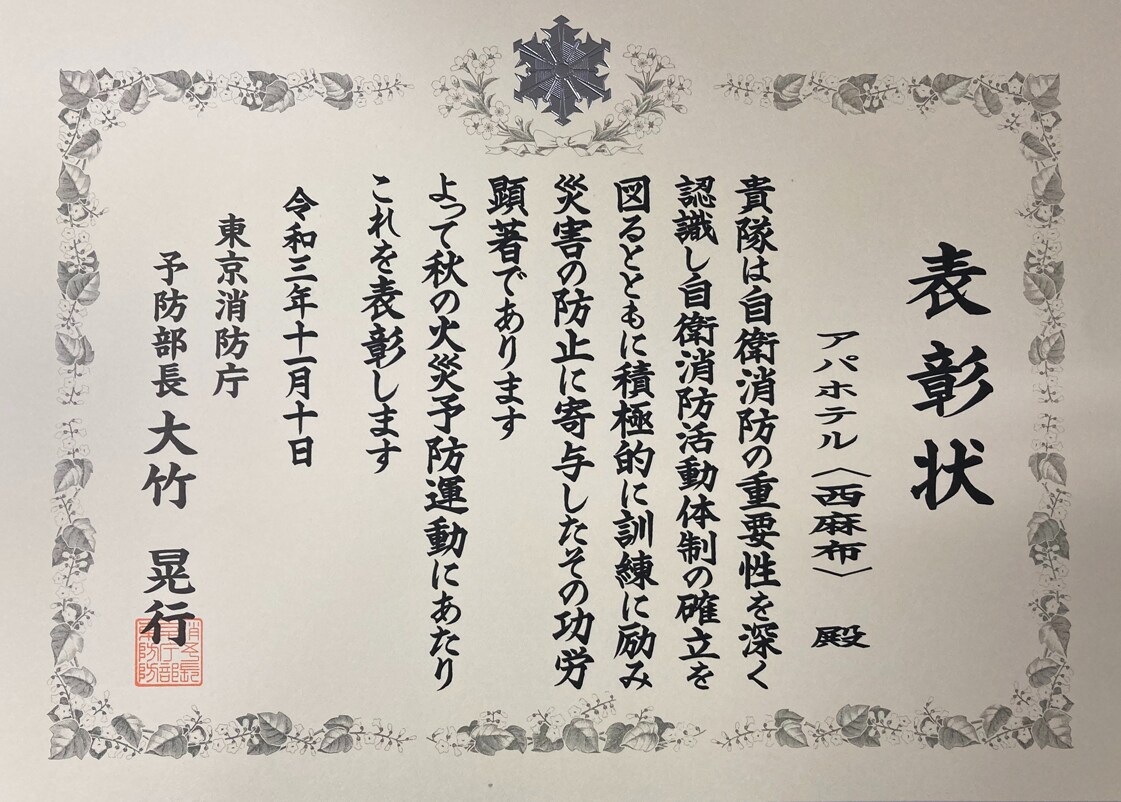 表彰状
アパホテル〈西麻布〉 殿
貴隊は自衛消防の重要性を深く
認識し自衛消防活動体制の確立を
図るとともに積極的に訓練に励み
災害の防止に寄与したその功労
顕著であります
よって秋の火災予防運動にあたり
これを表彰します
令和三年十一月十日
東京消防庁
予防部長 大竹 晃行